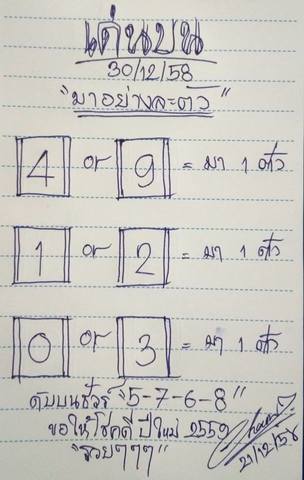 เด่นบน
30/12/58
"มาอย่างละตัว"
4 or 9 = มา 1 ตัว
1 or 2 = มา 1 ตัว
0 or 3 = มา 1 ตัว
ดับบนชัวร์ "5-7-6-8"
ขอให้โชคดี ปีใหม่ 2559
"รวยๆๆๆ"
21/12/58